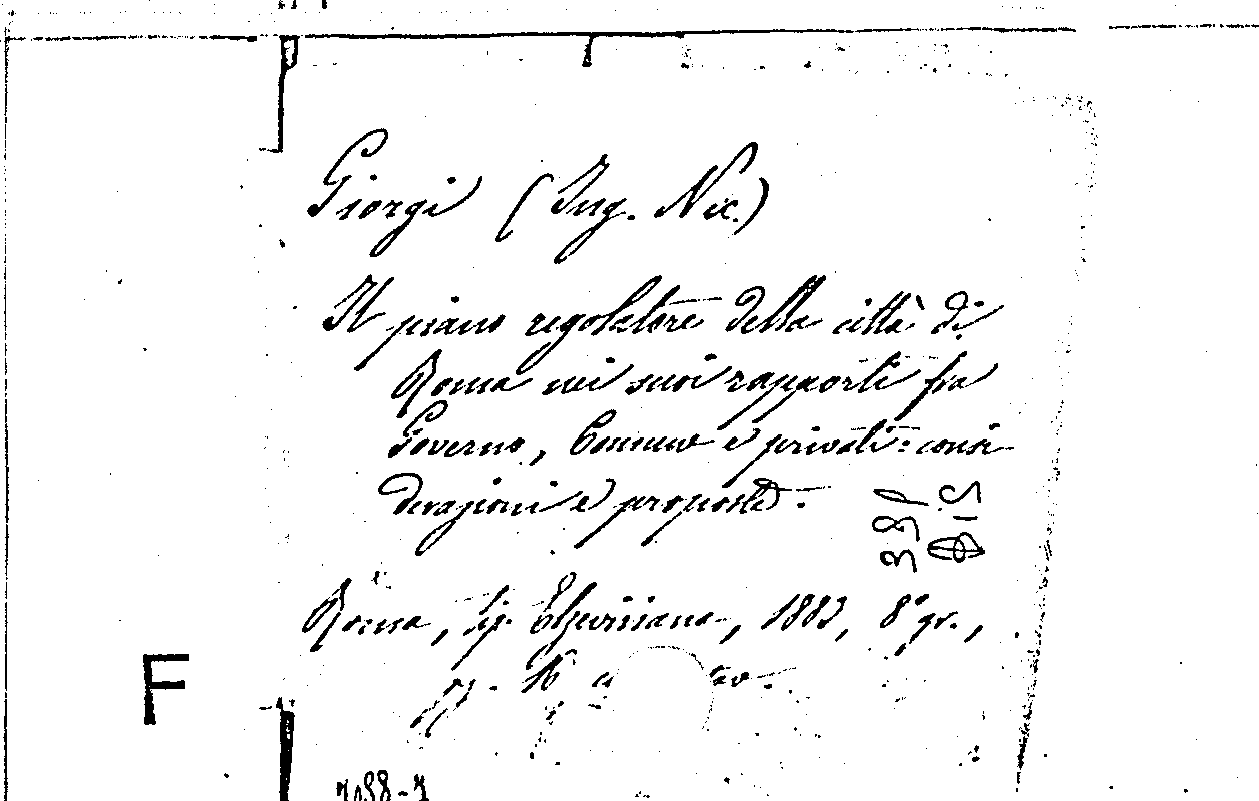 Giorgi (Ing. Nic.)
Il piano regolatore della città di
Roma nei suoi rapporti fra
Governo, Comune e privati: consi
derazioni e proposte.
Roma, tip. Elzeviriana, 1883, 8° gr.,
pp. 16
398
Bis
F